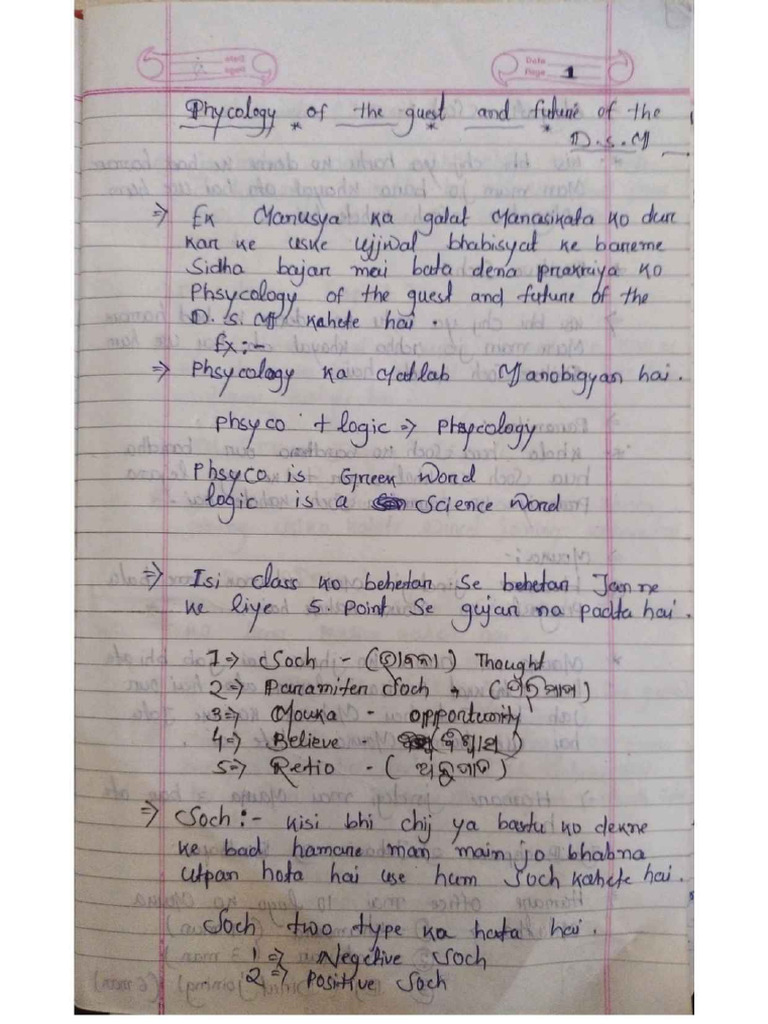 Date
Page 1
Phycology of the guest and future of the
D.S.M
=> Ek Manusya ka galat Manasikata ko dur
kar ke uske ujjwal bhabisyat ke bareme
Sidha bajar mei bata dena prakriya ko
Phsycology of the guest and future of the
D.S.M kahete hai.
Ex:-
=> Phsycology ka Matlab Manobigyan hai.
Phsyco + logic => Phsycology
Phsyco is Greek Word
logic is a Science Word
=> Isi class ko behetar se behetar Janne
ke liye 5. Point Se gujar na padta hai.
1=> Soch - (ଭାବନା) Thought
2=> Paramiter Soch → (ପରିମାପ)
3=> Mouka - opportunity
4=> Believe - (ବିଶ୍ୱାସ)
5=> Retio - (ଅନୁପାତ)
=> Soch:- kisi bhi chij ya bastu ko dekne
ke bad hamare man main jo bhabna
utpan hota hai use hum Soch kahete hai.
Soch two type ka hata hai.
1=> Negetive Soch
2=> Positive Soch